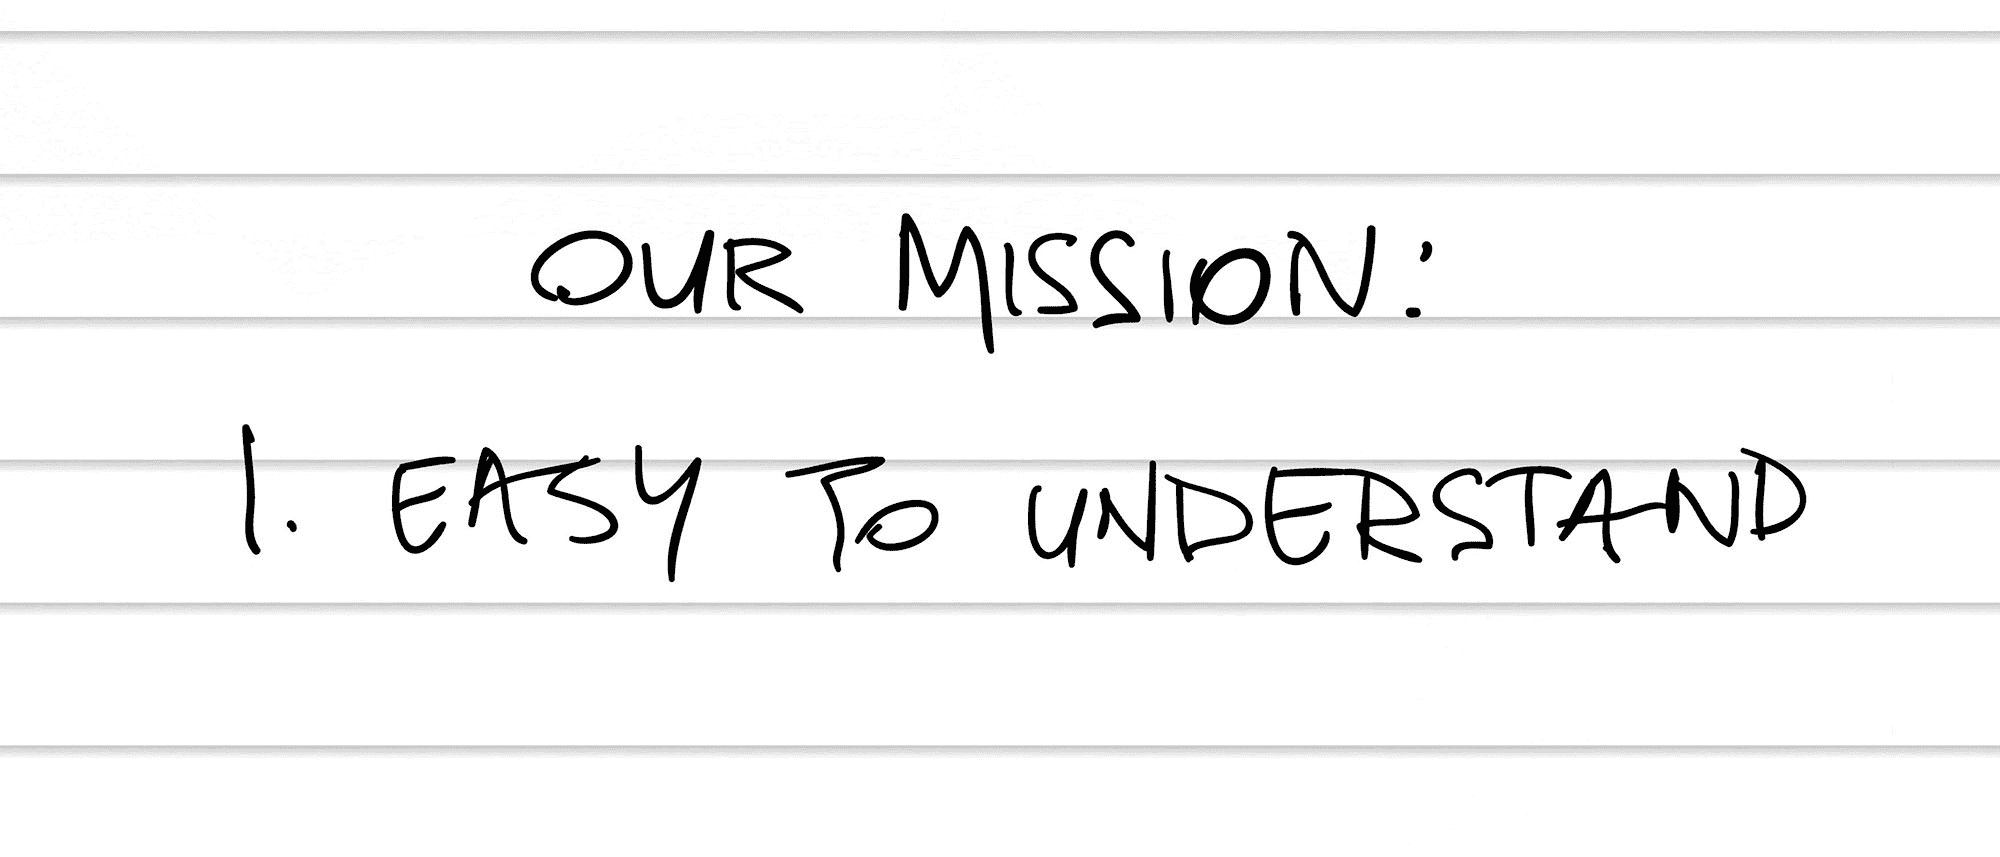 OUR MISSION:
1. EASY TO UNDERSTAND